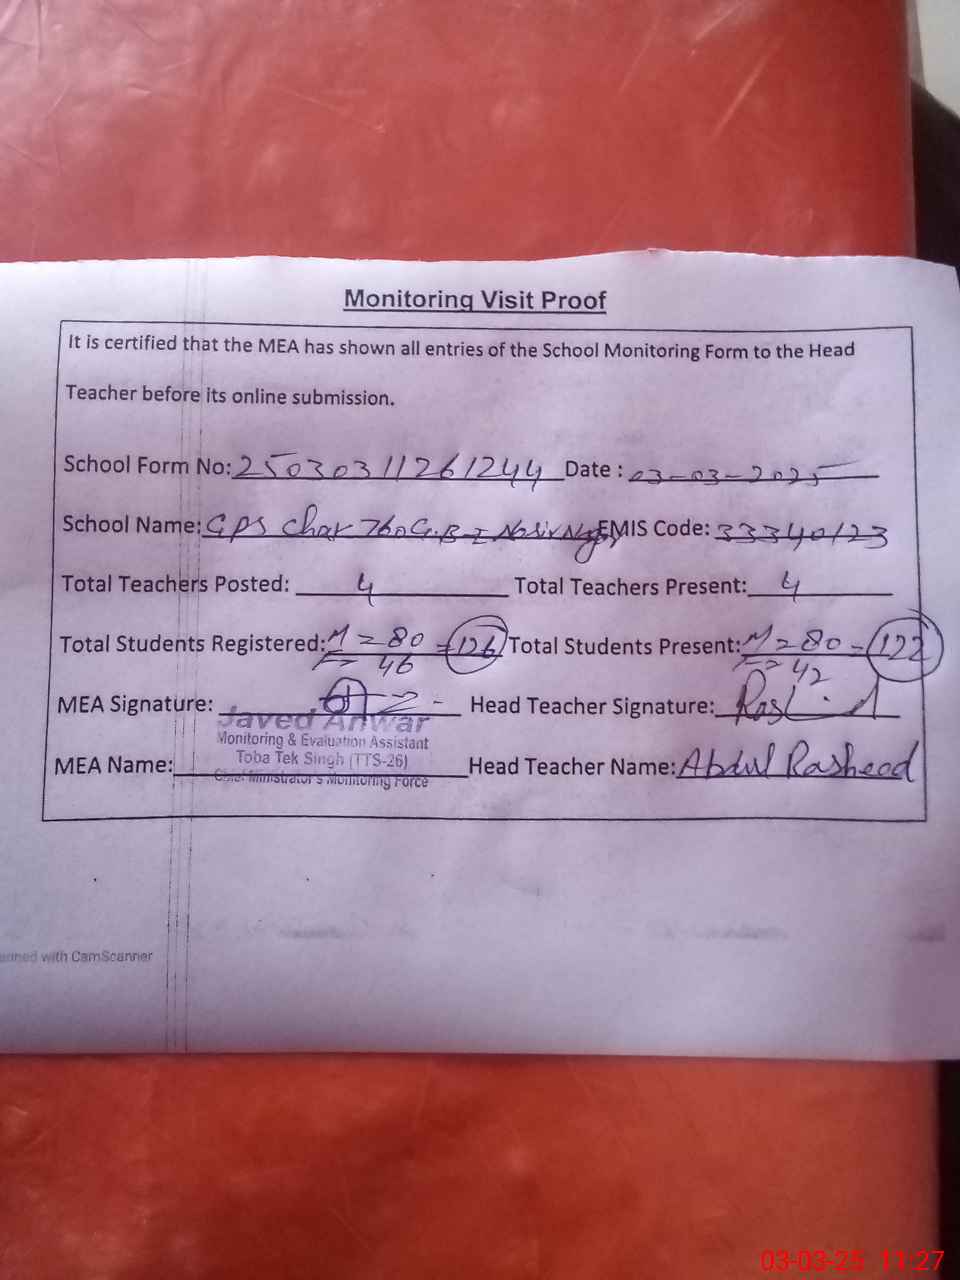 Monitoring Visit Proof
It is certified that the MEA has shown all entries of the School Monitoring Form to the Head
Teacher before its online submission.
School Form No: 25030311261244 Date : 03-03-2025
School Name: GPS Chak 760 G.B-I Nasir Nagar EMIS Code: 33340123
Total Teachers Posted: 4 Total Teachers Present: 4
Total Students Registered: M = 80 = 126 Total Students Present: M = 80 = 122
F = 46 F = 42
MEA Signature: Head Teacher Signature: Rashid
Javed Anwar
Monitoring & Evaluation Assistant
Toba Tek Singh (TTS-26)
MEA Name: Head Teacher Name: Abdul Rasheed
Chief Ministrator's Monitoring Force
anned with CamScanner
03-03-25 11:27